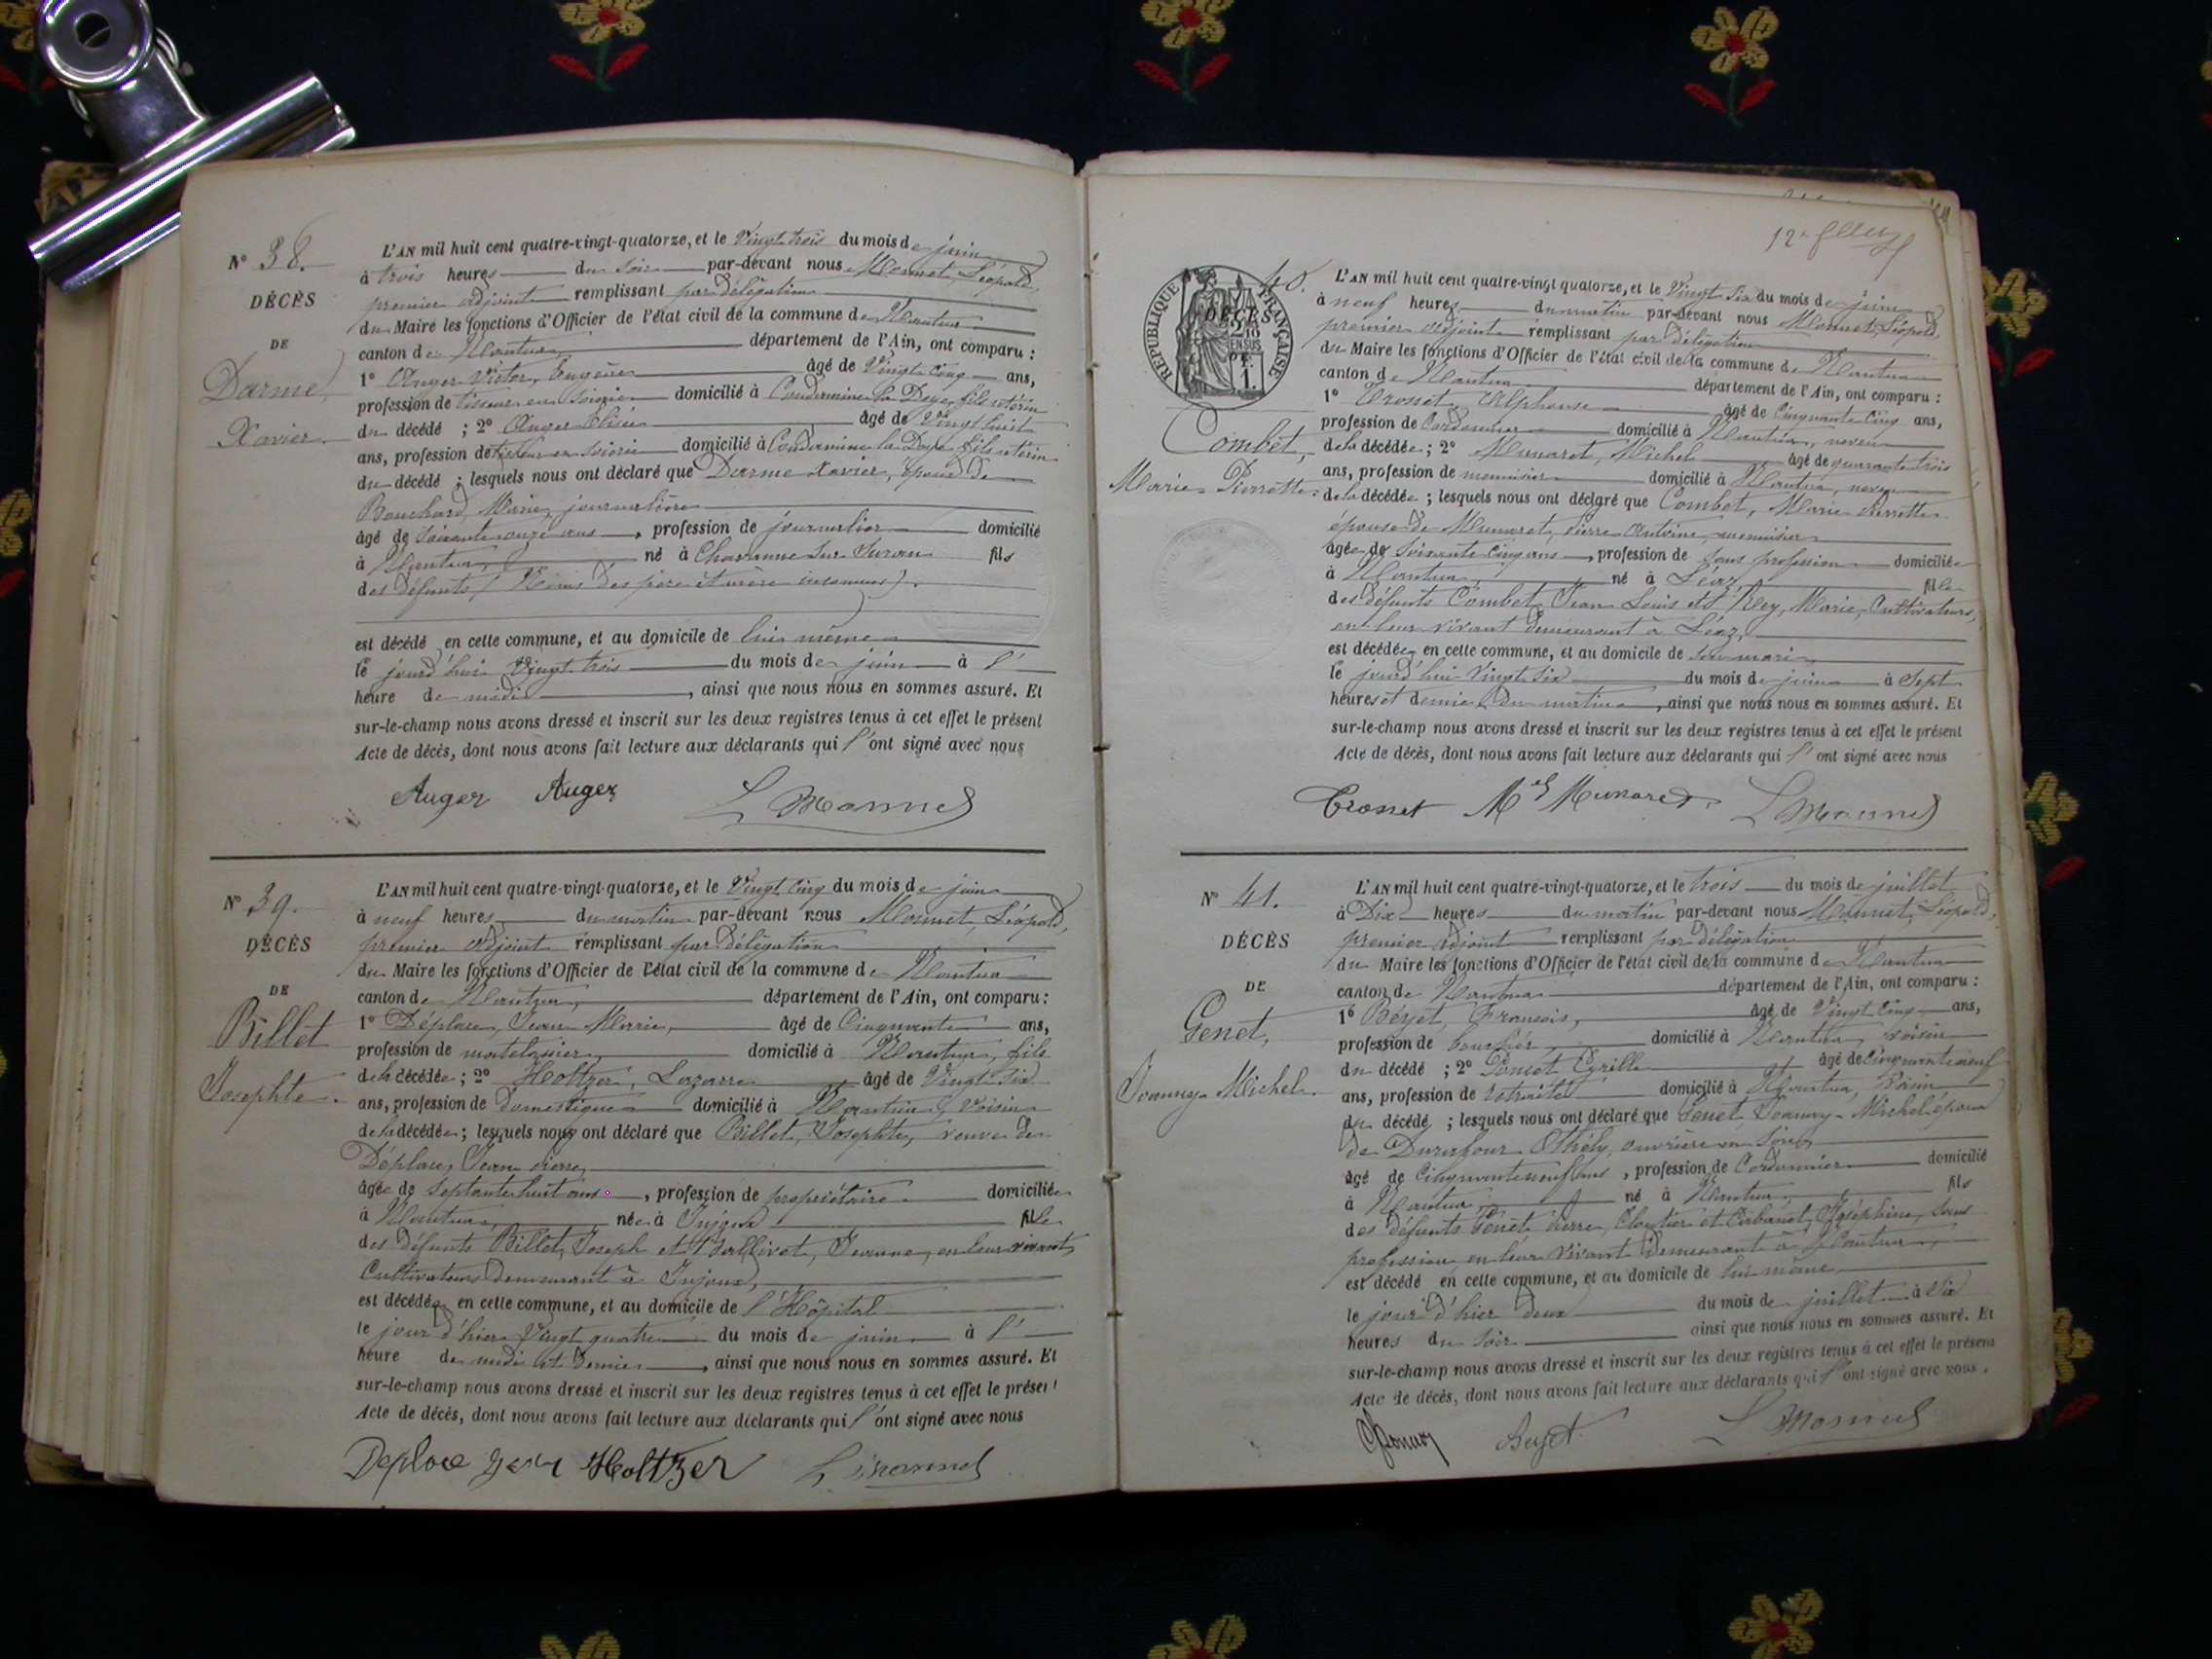 N° 38.
DÉCÈS
DE
Darme,
Xavier.
L'AN mil huit cent quatre-vingt-quatorze, et le Vingt trois du mois de juin
à trois heures du soir par-devant nous Monnet, Léopold,
premier adjoint remplissant par délégation
du Maire les fonctions d'Officier de l'état civil de la commune de Nantua
canton de Nantua département de l'Ain, ont comparu :
1° Auger Victor, Eugène âgé de Vingt cinq ans,
profession de tisseur en soierie domicilié à Condamine la Doye, fils utérin
du décédé ; 2° Auger Elisée âgé de Vingt huit
ans, profession de tisseur en soierie domicilié à Condamine la Doye, fils utérin
du décédé ; lesquels nous ont déclaré que Darme Xavier, époux de
Bouchard, Marie, journalière
âgé de soixante onze ans, profession de journalier domicilié
à Nantua, né à Chavannes sur Suran fils
des défunts (Noms des père et mère inconnus).
est décédé en cette commune, et au domicile de lui même
le jourd'hui Vingt trois du mois de juin à l'
heure de midi, ainsi que nous nous en sommes assuré. Et
sur-le-champ nous avons dressé et inscrit sur les deux registres tenus à cet effet le présent
Acte de décès, dont nous avons fait lecture aux déclarants qui l'ont signé avec nous
Auger Auger L Monnet
N° 39.
DÉCÈS
DE
Billet
Josephte.
L'AN mil huit cent quatre-vingt-quatorze, et le Vingt cinq du mois de juin
à neuf heures du matin par-devant nous Monnet, Léopold,
premier adjoint remplissant par délégation
du Maire les fonctions d'Officier de l'état civil de la commune de Nantua
canton de Nantua, département de l'Ain, ont comparu :
1° Déplace, Jean Marie, âgé de Cinquante ans,
profession de matelassier, domicilié à Nantua, fils
de la décédée ; 2° Holtzer, Lazarre âgé de Vingt six
ans, profession de domestique domicilié à Nantua, voisin
de la décédée ; lesquels nous ont déclaré que Billet, Josephte, veuve de
Déplace, Jean pierre,
âgée de septante huit ans, profession de propriétaire domiciliée
à Nantua, née à Injoux fille
des défunts Billet, Joseph et Ballivet, Jeanne, en leur vivant
Cultivateurs demeurant à Injoux,
est décédée en cette commune, et au domicile de l'Hôpital
le jour d'hier Vingt quatre du mois de juin à l'
heure de midi et demie, ainsi que nous nous en sommes assuré. Et
sur-le-champ nous avons dressé et inscrit sur les deux registres tenus à cet effet le présent
Acte de décès, dont nous avons fait lecture aux déclarants qui l'ont signé avec nous
Deplace Jean Holtzer L. Monnet
RÉPUBLIQUE FRANÇAISE
40.
DÉCÈS
Combet,
Marie Pierrette.
L'AN mil huit cent quatre-vingt quatorze, et le Vingt six du mois de juin
à neuf heures du matin par-devant nous Monnet, Léopold,
premier adjoint remplissant par délégation
du Maire les fonctions d'Officier de l'état civil de la commune de Nantua
canton de Nantua département de l'Ain, ont comparu :
1° Crosnet, Alphonse âgé de Cinquante cinq ans,
profession de Cordonnier domicilié à Nantua, neveu
de la décédée ; 2° Munaret, Michel âgé de quarante trois
ans, profession de menuisier domicilié à Nantua, neveu
de la décédée ; lesquels nous ont déclaré que Combet, Marie Pierrette
épouse de Munaret, Pierre Antoine, menuisier
âgée de soixante cinq ans, profession de sans profession domiciliée
à Nantua, né à Léaz, fille
des défunts Combet, Jean Louis et Rey, Marie, Cultivateurs,
en leur vivant demeurant à Léaz,
est décédée en cette commune, et au domicile de son mari
le jourd'hui Vingt six du mois de juin à sept
heures et demie du matin, ainsi que nous nous en sommes assuré. Et
sur-le-champ nous avons dressé et inscrit sur les deux registres tenus à cet effet le présent
Acte de décès, dont nous avons fait lecture aux déclarants qui l'ont signé avec nous
Crosnet Mel Munaret L Monnet
N° 41.
DÉCÈS
DE
Genet,
Joanny-Michel.
L'AN mil huit cent quatre-vingt-quatorze, et le trois du mois de juillet
à Dix heures du matin par-devant nous Monnet, Léopold,
premier adjoint remplissant par délégation
du Maire les fonctions d'Officier de l'état civil de la commune de Nantua
canton de Nantua département de l'Ain, ont comparu :
1° Béyet, François, âgé de Vingt cinq ans,
profession de boucher, domicilié à Nantua, voisin
du décédé ; 2° Cyrille âgé de cinquante neuf
ans, profession de retraité domicilié à Nantua, voisin
du décédé ; lesquels nous ont déclaré que Genet, Joanny-Michel époux
de Durafour Othély, ouvrière en soie,
âgé de Cinquante neuf ans, profession de Cordonnier domicilié
à Nantua, né à Nantua, fils
des défunts Genet, Pierre, Cloutier et Cabanet, Joséphine, sans
profession, en leur vivant demeurant à Nantua,
est décédé en cette commune, et au domicile de lui même
le jour d'hier deux du mois de juillet à six
heures du soir ainsi que nous nous en sommes assuré. Et
sur-le-champ nous avons dressé et inscrit sur les deux registres tenus à cet effet le présent
Acte de décès, dont nous avons fait lecture aux déclarants qui l'ont signé avec nous.
Beyet L Monnet